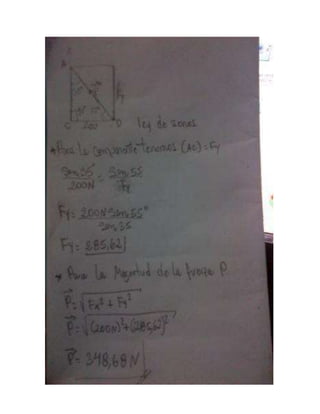 A
35°
55°
Fy
C 200 D
ley de senos
* Para la componente tenemos (AC) = Fy
Sen 35° = Sen 55
200N Fy
Fy = 200N Sen 55°
Sen 35
Fy = 285,62
* Para la Magnitud de la fuerza P
P = √Fx² + Fy²
P = √(200N)² + (285,62)²
P = 348,68 N